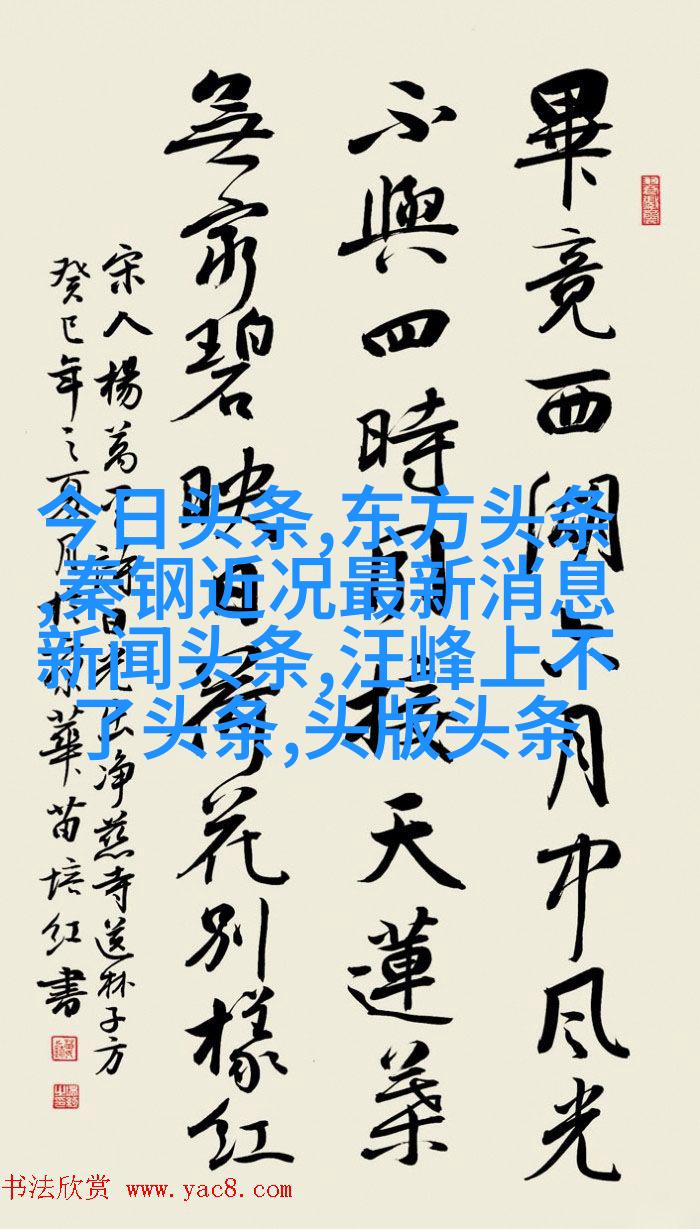 畢竟西湖六月中风光
不與四時同接天蓮葉
無窮碧映日荷花別樣红
宋人楊萬里詩曰曉出净慈寺送林子方
癸巳年之夏月於京華苗培红書
今日头条,东方头条
,秦钢近况最新消息
新闻头条,汪峰上不
了头条,头版头条
书法欣赏 www.yac8.com